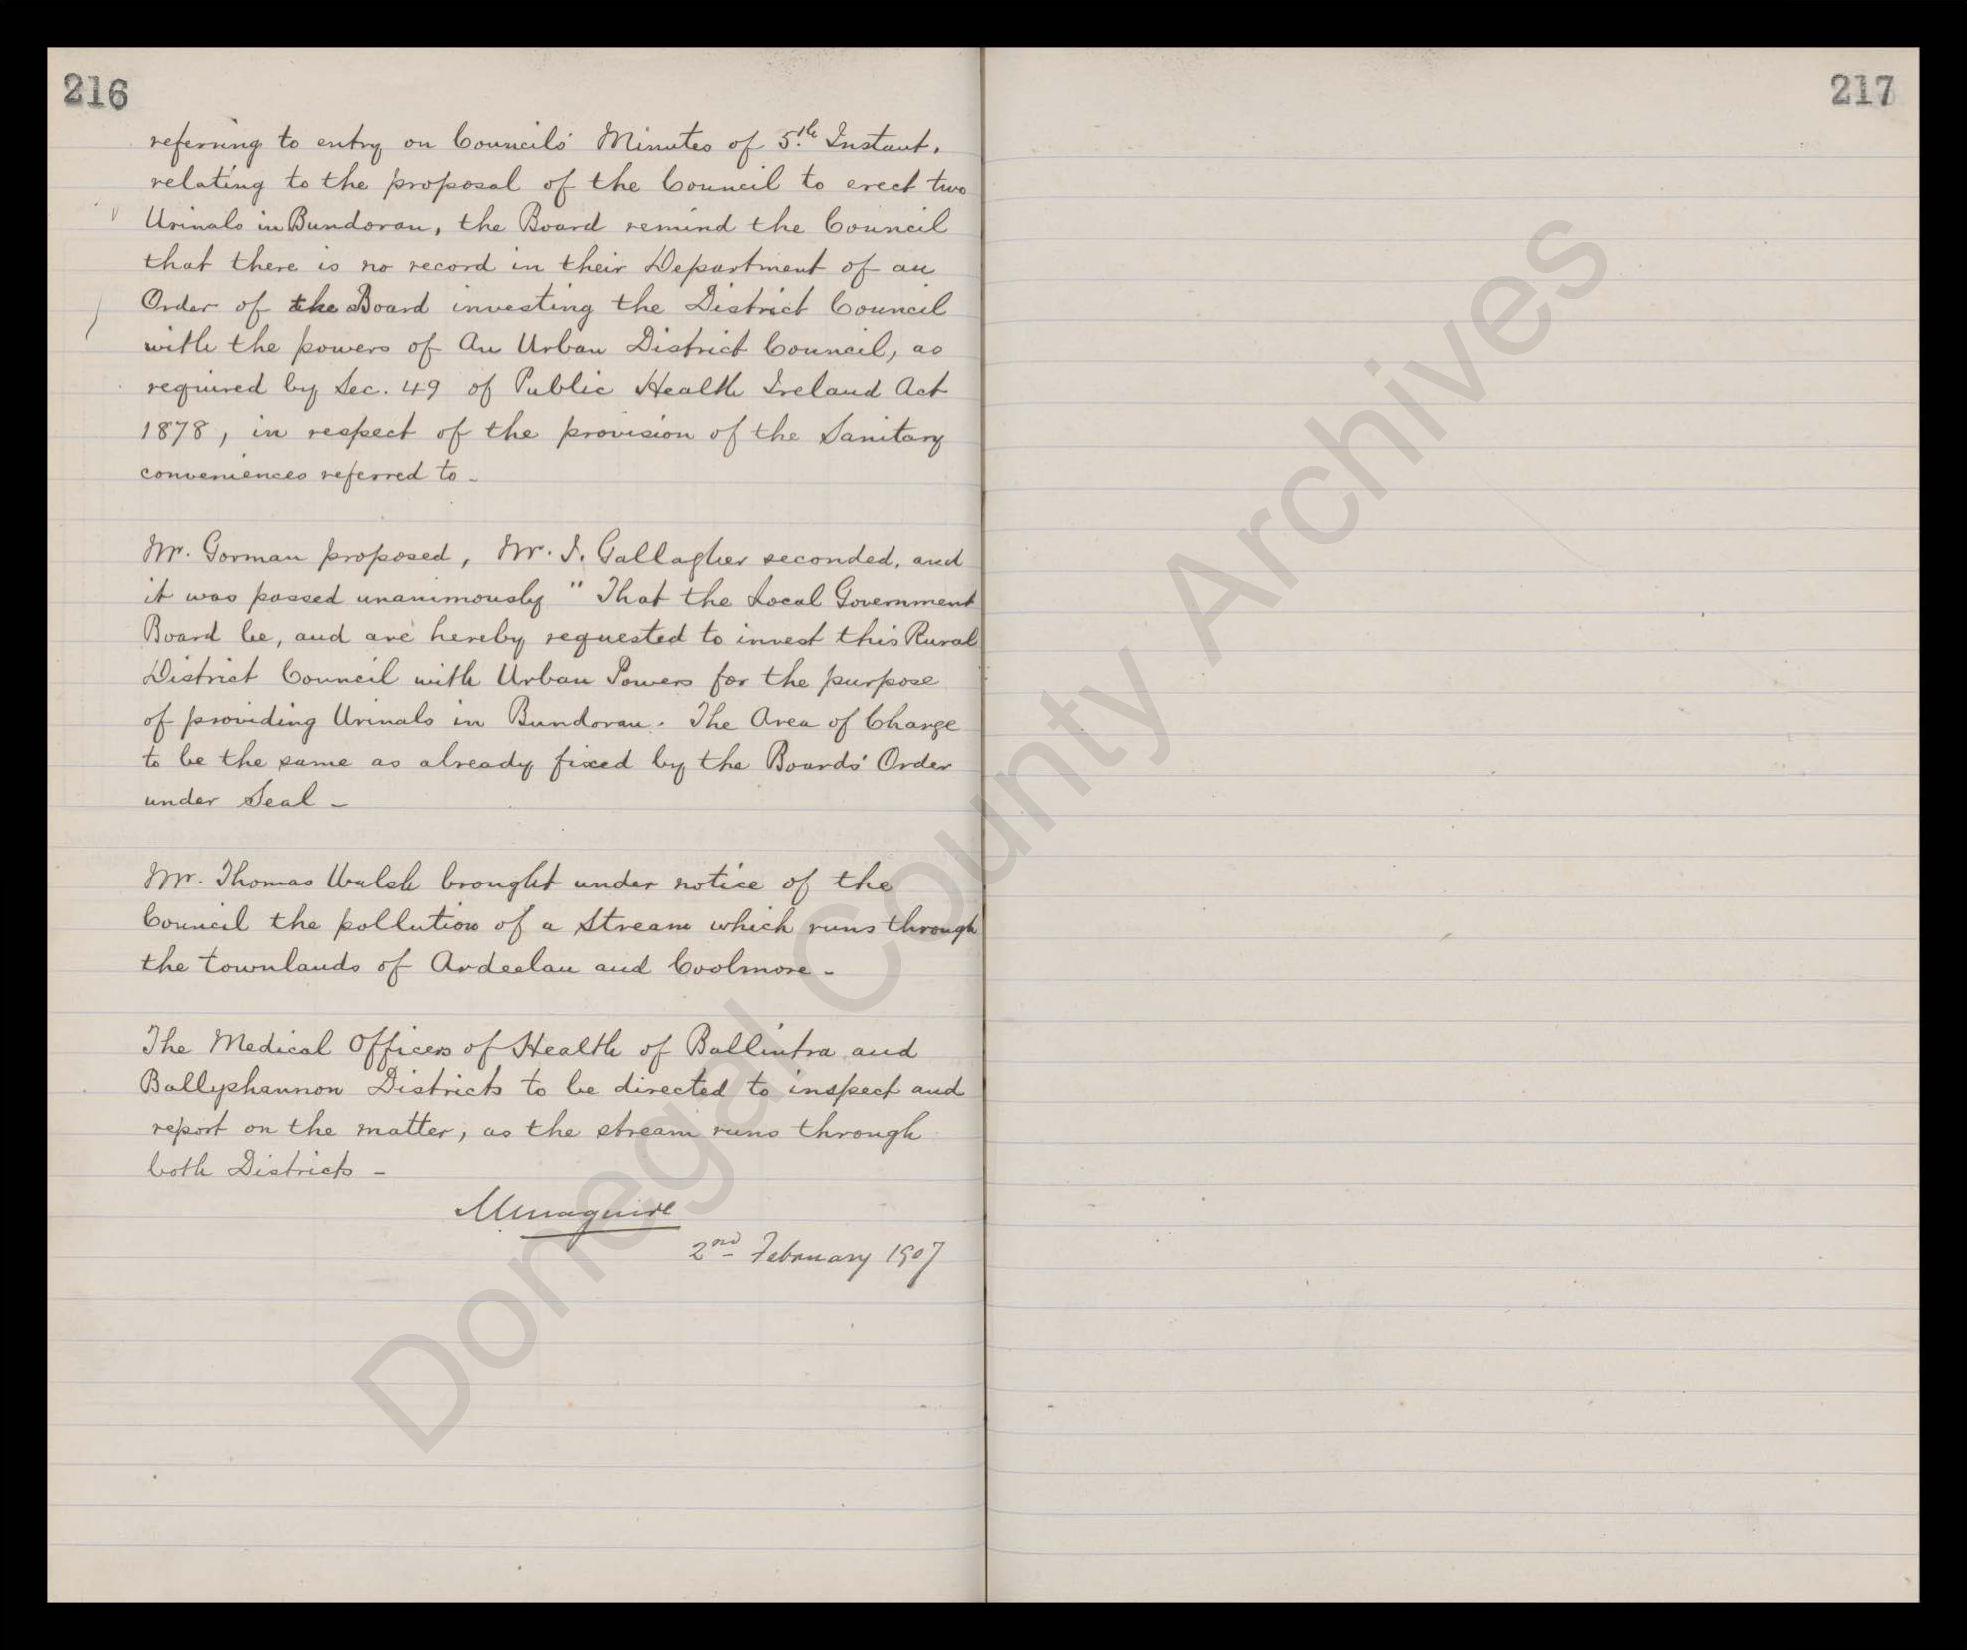 216
referring to entry on Councils' Minutes of 5th Instant,
relating to the proposal of the Council to erect two
Urinals in Bundoran, the Board remind the Council
that there is no record in their Department of an
Order of the Board investing the District Council
with the powers of An Urban District Council, as
required by Sec. 49 of Public Health Ireland Act
1878, in respect of the provision of the Sanitary
conveniences referred to -
Mr. Gorman proposed, Mr. J. Gallagher seconded, and
it was passed unanimously "That the Local Government
Board be, and are hereby requested to invest this Rural
District Council with Urban Powers for the purpose
of providing Urinals in Bundoran. The Area of Charge
to be the same as already fixed by the Boards' Order
under Seal -
Mr. Thomas Walsh brought under notice of the
Council the pollution of a Stream which runs through
the townlands of Ardeelan and Coolmore -
The Medical Officers of Health of Ballintra and
Ballyshannon Districts to be directed to inspect and
report on the matter, as the stream runs through
both Districts -
2nd February 1907
217
Donegal County Archives